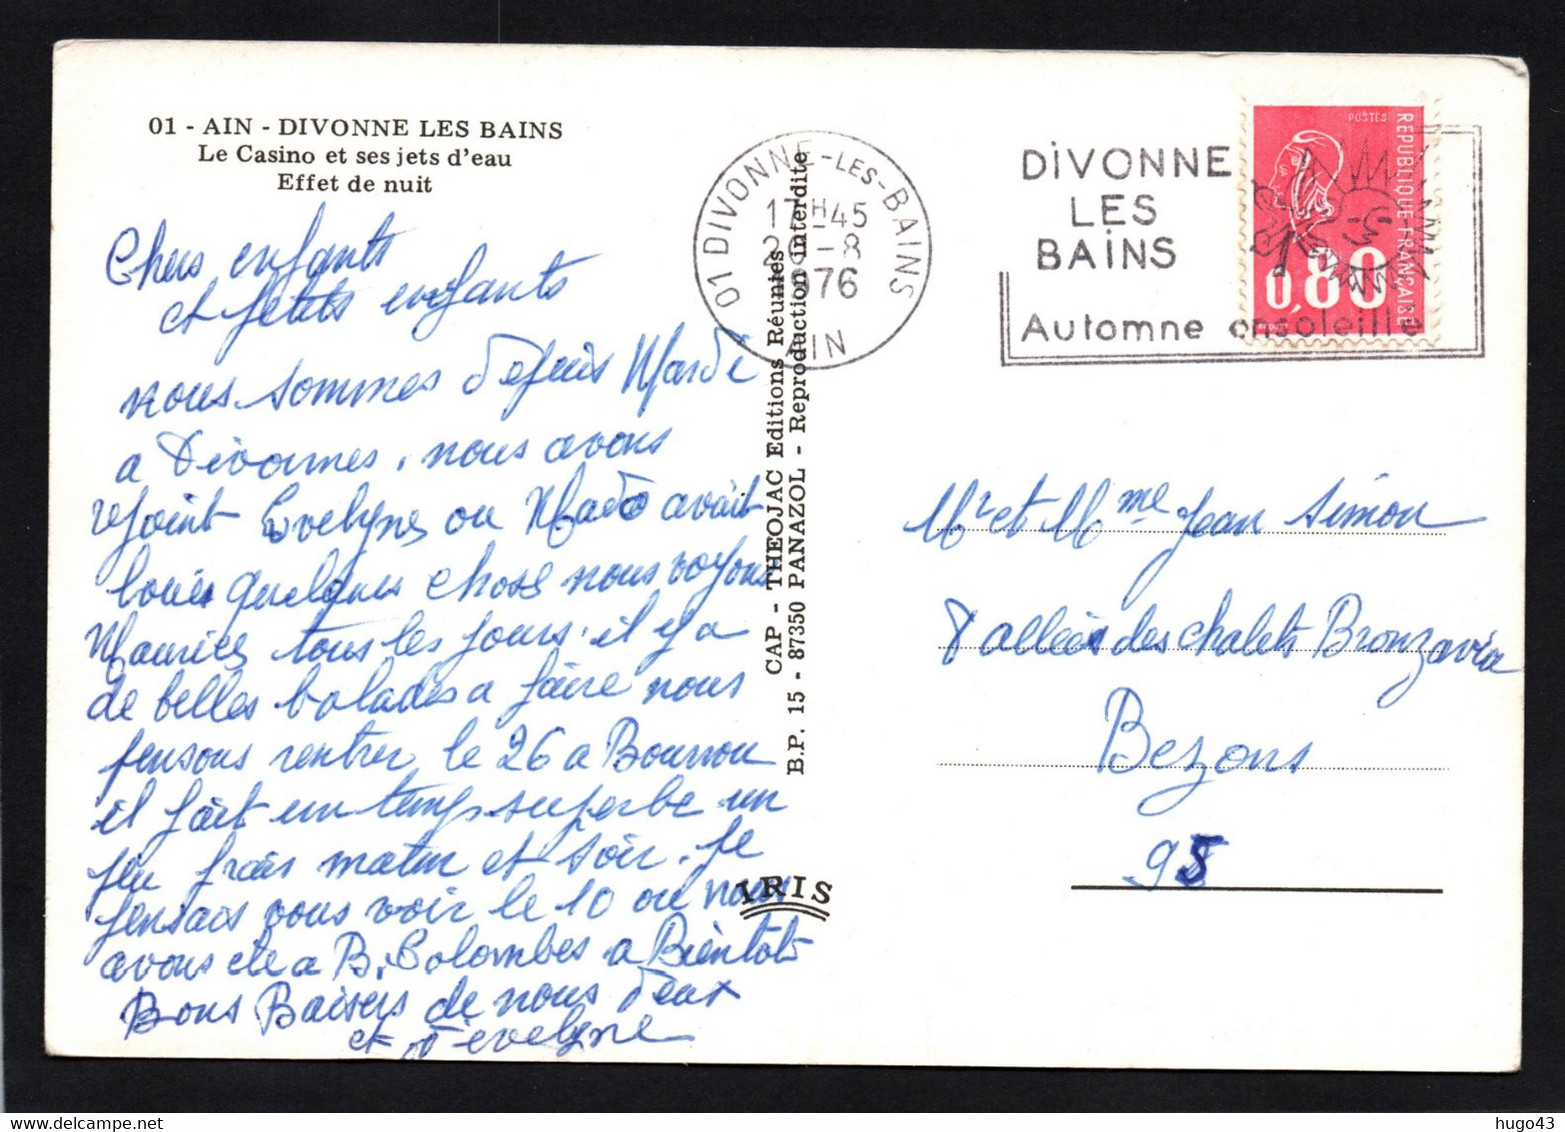 01 - AIN - DIVONNE LES BAINS
Le Casino et ses jets d'eau
Effet de nuit
Chers enfants
et petits enfants
nous sommes depuis Mardi
a Divonnes. nous avons
rejoint Evelyne ou Mado avait
louer quelques chose nous voyons
Maurice tous les jours. il y a
de belles balades a faire nous
pensons rentrer le 26 a Bourron
il fait un temps superbe un
peu frais matin et soir. je
pensais vous voir le 10 ou nous
avons ete a B. Colombes a Bientôt
Bons Baisers de nous deux
et d'evelyne
CAP - THEOJAC Editions Réunies
B.P. 15 - 87350 PANAZOL - Reproduction interdite
IRIS
01 DIVONNE-LES-BAINS
17H45
-8
1976
AIN
DIVONNE
LES
BAINS
Automne ensoleillé
POSTES
REPUBLIQUE FRANÇAISE
0,80
Mr et Mme Jean Simon
8 allée des chalets Bronzavia
Bezons
95
hugo43